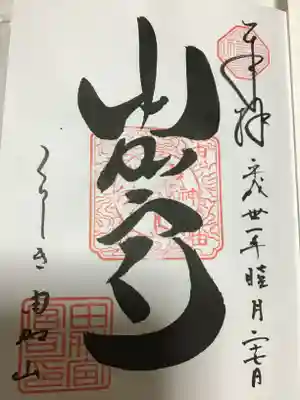 奉拝 平成丗一年 睦月 二十七日
由加宮
くらしき 由加山